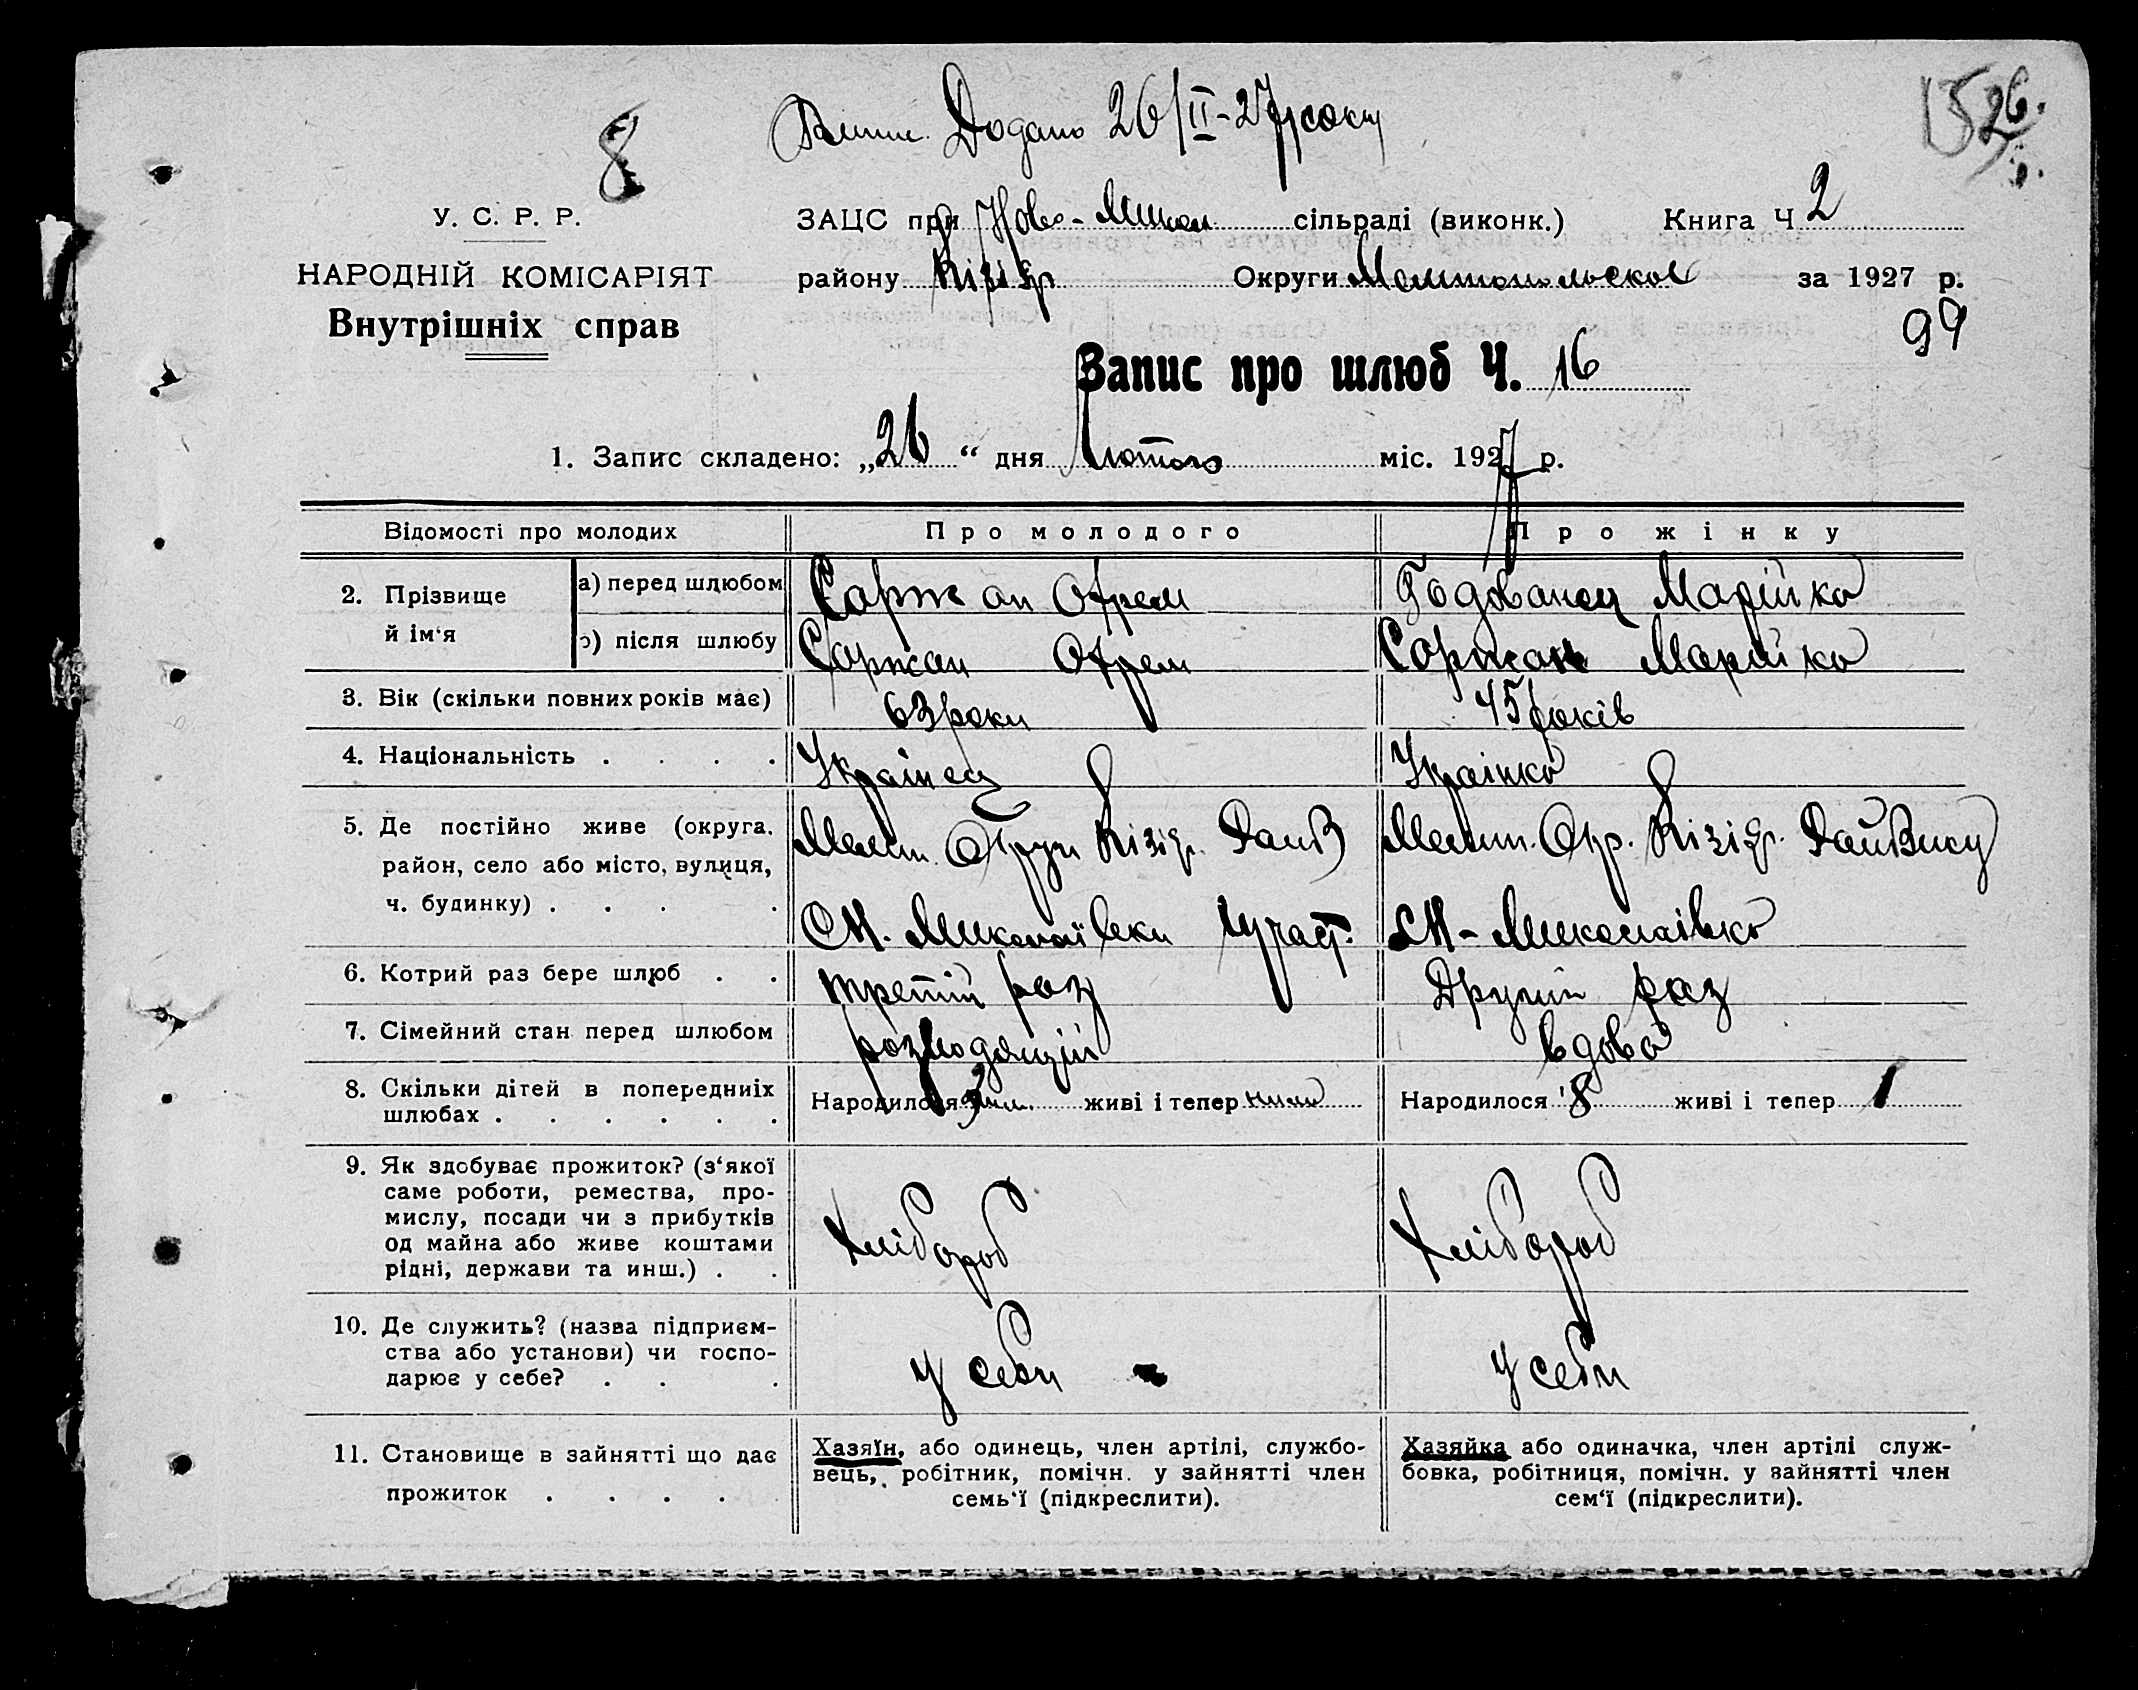 Випис Додано 26/II-27 року
8
26.
У. С. Р. Р.
ЗАЦС при Ново-Микол. сільраді (виконк.) Книга Ч 2
НАРОДНІЙ КОМІСАРІЯТ
району Кізіяр Округи Мелитопольскої за 1927 р.
Внутрішніх справ
99
Запис про шлюб Ч. 16
1. Запис складено: „26“ дня Лютого міс. 1927 р.
Відомості про молодих Про молодого Про жінку
2. Прізвище й ім‘я
а) перед шлюбом Саржан Охрем Годованец Марійка
б) після шлюбу Саржан Охрем Саржан Марийка
3. Вік (скільки повних років має) 63 роки 45 років
4. Національність . . . . Українец Українка
5. Де постійно живе (округа, Мелит. Округи Кізіяр. Мелит. Окр. Кізіяр.
район, село або місто, вулиця,
ч. будинку) . . . . Н. Миколаївки Н-Миколаівка
6. Котрий раз бере шлюб . . третій раз Другий раз
7. Сімейний стан перед шлюбом вдова
8. Скільки дітей в попередниіх Народилося живі і тепер Народилося 8 живі і тепер 1
шлюбах . . . . . .
9. Як здобуває прожиток? (з‘якої
саме роботи, ремества, про-
мислу, посади чи з прибутків Хлібороб Хлібороб
од майна або живе коштами
рідні, держави та инш.) . .
10. Де служить? (назва підприєм-
ства або установи) чи госпо- у себи у себи
дарює у себе? . . .
11. Становище в зайнятті що дає
прожиток . . . . .
Хазяїн, або одинець, член артілі, службо-
вець, робітник, помічн. у зайнятті член
семь‘ї (підкреслити).
Хазяйка або одиначка, член артілі служ-
бовка, робітниця, помічн. у зайнятті член
сем‘ї (підкреслити).